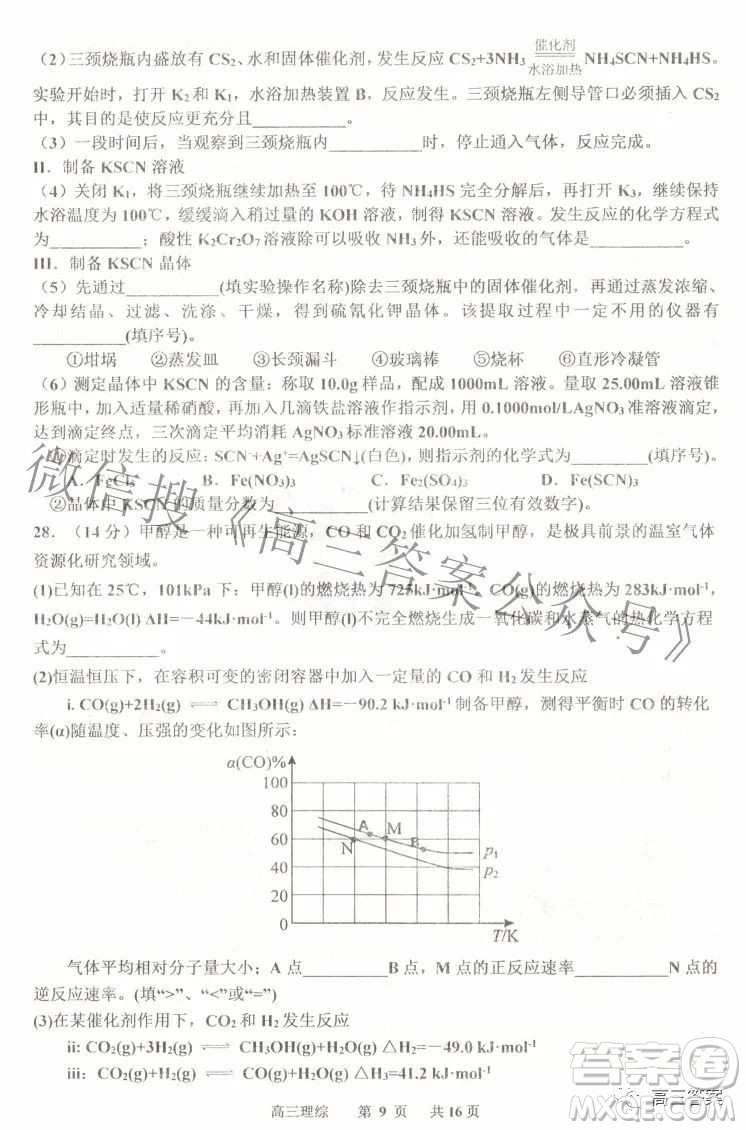 (2)三颈烧瓶内盛放有 CS₂、水和固体催化剂,发生反应 CS₂+3NH₃ 催化剂 水浴加热 NH₄SCN+NH₄HS。
实验开始时,打开 K₂ 和 K₁,水浴加热装置 B,反应发生。三颈烧瓶左侧导管口必须插入 CS₂
中,其目的是使反应更充分且__________。
(3)一段时间后,当观察到三颈烧瓶内__________时,停止通入气体,反应完成。
II.制备 KSCN 溶液
(4)关闭 K₁,将三颈烧瓶继续加热至 100℃,待 NH₄HS 完全分解后,再打开 K₃,继续保持
水浴温度为 100℃,缓缓滴入稍过量的 KOH 溶液,制得 KSCN 溶液。发生反应的化学方程式
为__________;酸性 K₂Cr₂O₇ 溶液除可以吸收 NH₃ 外,还能吸收的气体是__________。
III.制备 KSCN 晶体
(5)先通过__________(填实验操作名称)除去三颈烧瓶中的固体催化剂,再通过蒸发浓缩、
冷却结晶、过滤、洗涤、干燥,得到硫氰化钾晶体。该提取过程中一定不用的仪器有
__________(填序号)。
①坩埚 ②蒸发皿 ③长颈漏斗 ④玻璃棒 ⑤烧杯 ⑥直形冷凝管
(6)测定晶体中 KSCN 的含量:称取 10.0g 样品,配成 1000mL 溶液。量取 25.00mL 溶液锥
形瓶中,加入适量稀硝酸,再加入几滴铁盐溶液作指示剂,用 0.1000mol/LAgNO₃ 准溶液滴定,
达到滴定终点,三次滴定平均消耗 AgNO₃ 标准溶液 20.00mL。
①滴定时发生的反应:SCN⁻+Ag⁺=AgSCN↓(白色),则指示剂的化学式为__________(填序号)。
A.FeCl₃ B.Fe(NO₃)₃ C.Fe₂(SO₄)₃ D.Fe(SCN)₃
②晶体中 KSCN 的质量分数为__________(计算结果保留三位有效数字)。
28.(14 分)甲醇是一种可再生能源,CO 和 CO₂ 催化加氢制甲醇,是极具前景的温室气体
资源化研究领域。
(1)已知在 25℃,101kPa 下:甲醇(l)的燃烧热为 725kJ·mol⁻¹,CO(g)的燃烧热为 283kJ·mol⁻¹,
H₂O(g)=H₂O(l) ΔH=-44kJ·mol⁻¹。则甲醇(l)不完全燃烧生成一氧化碳和水蒸气的热化学方程
式为__________。
(2)恒温恒压下,在容积可变的密闭容器中加入一定量的 CO 和 H₂ 发生反应
i. CO(g)+2H₂(g) ⇌ CH₃OH(g) ΔH=-90.2 kJ·mol⁻¹ 制备甲醇,测得平衡时 CO 的转化
率(α)随温度、压强的变化如图所示:
α(CO)%
100
80
60
40
20
0
A
M
B
N
p₁
p₂
T/K
气体平均相对分子量大小;A 点__________B 点,M 点的正反应速率__________N 点的
逆反应速率。(填“>”、“<”或“=”)
(3)在某催化剂作用下,CO₂ 和 H₂ 发生反应
ii: CO₂(g)+3H₂(g) ⇌ CH₃OH(g)+H₂O(g) △H₂=-49.0 kJ·mol⁻¹
iii: CO₂(g)+H₂(g) ⇌ CO(g)+H₂O(g) △H₃=41.2 kJ·mol⁻¹
高三理综 第 9 页 共 16 页
微信搜《高三答案公众号》
答案圈
高三答案